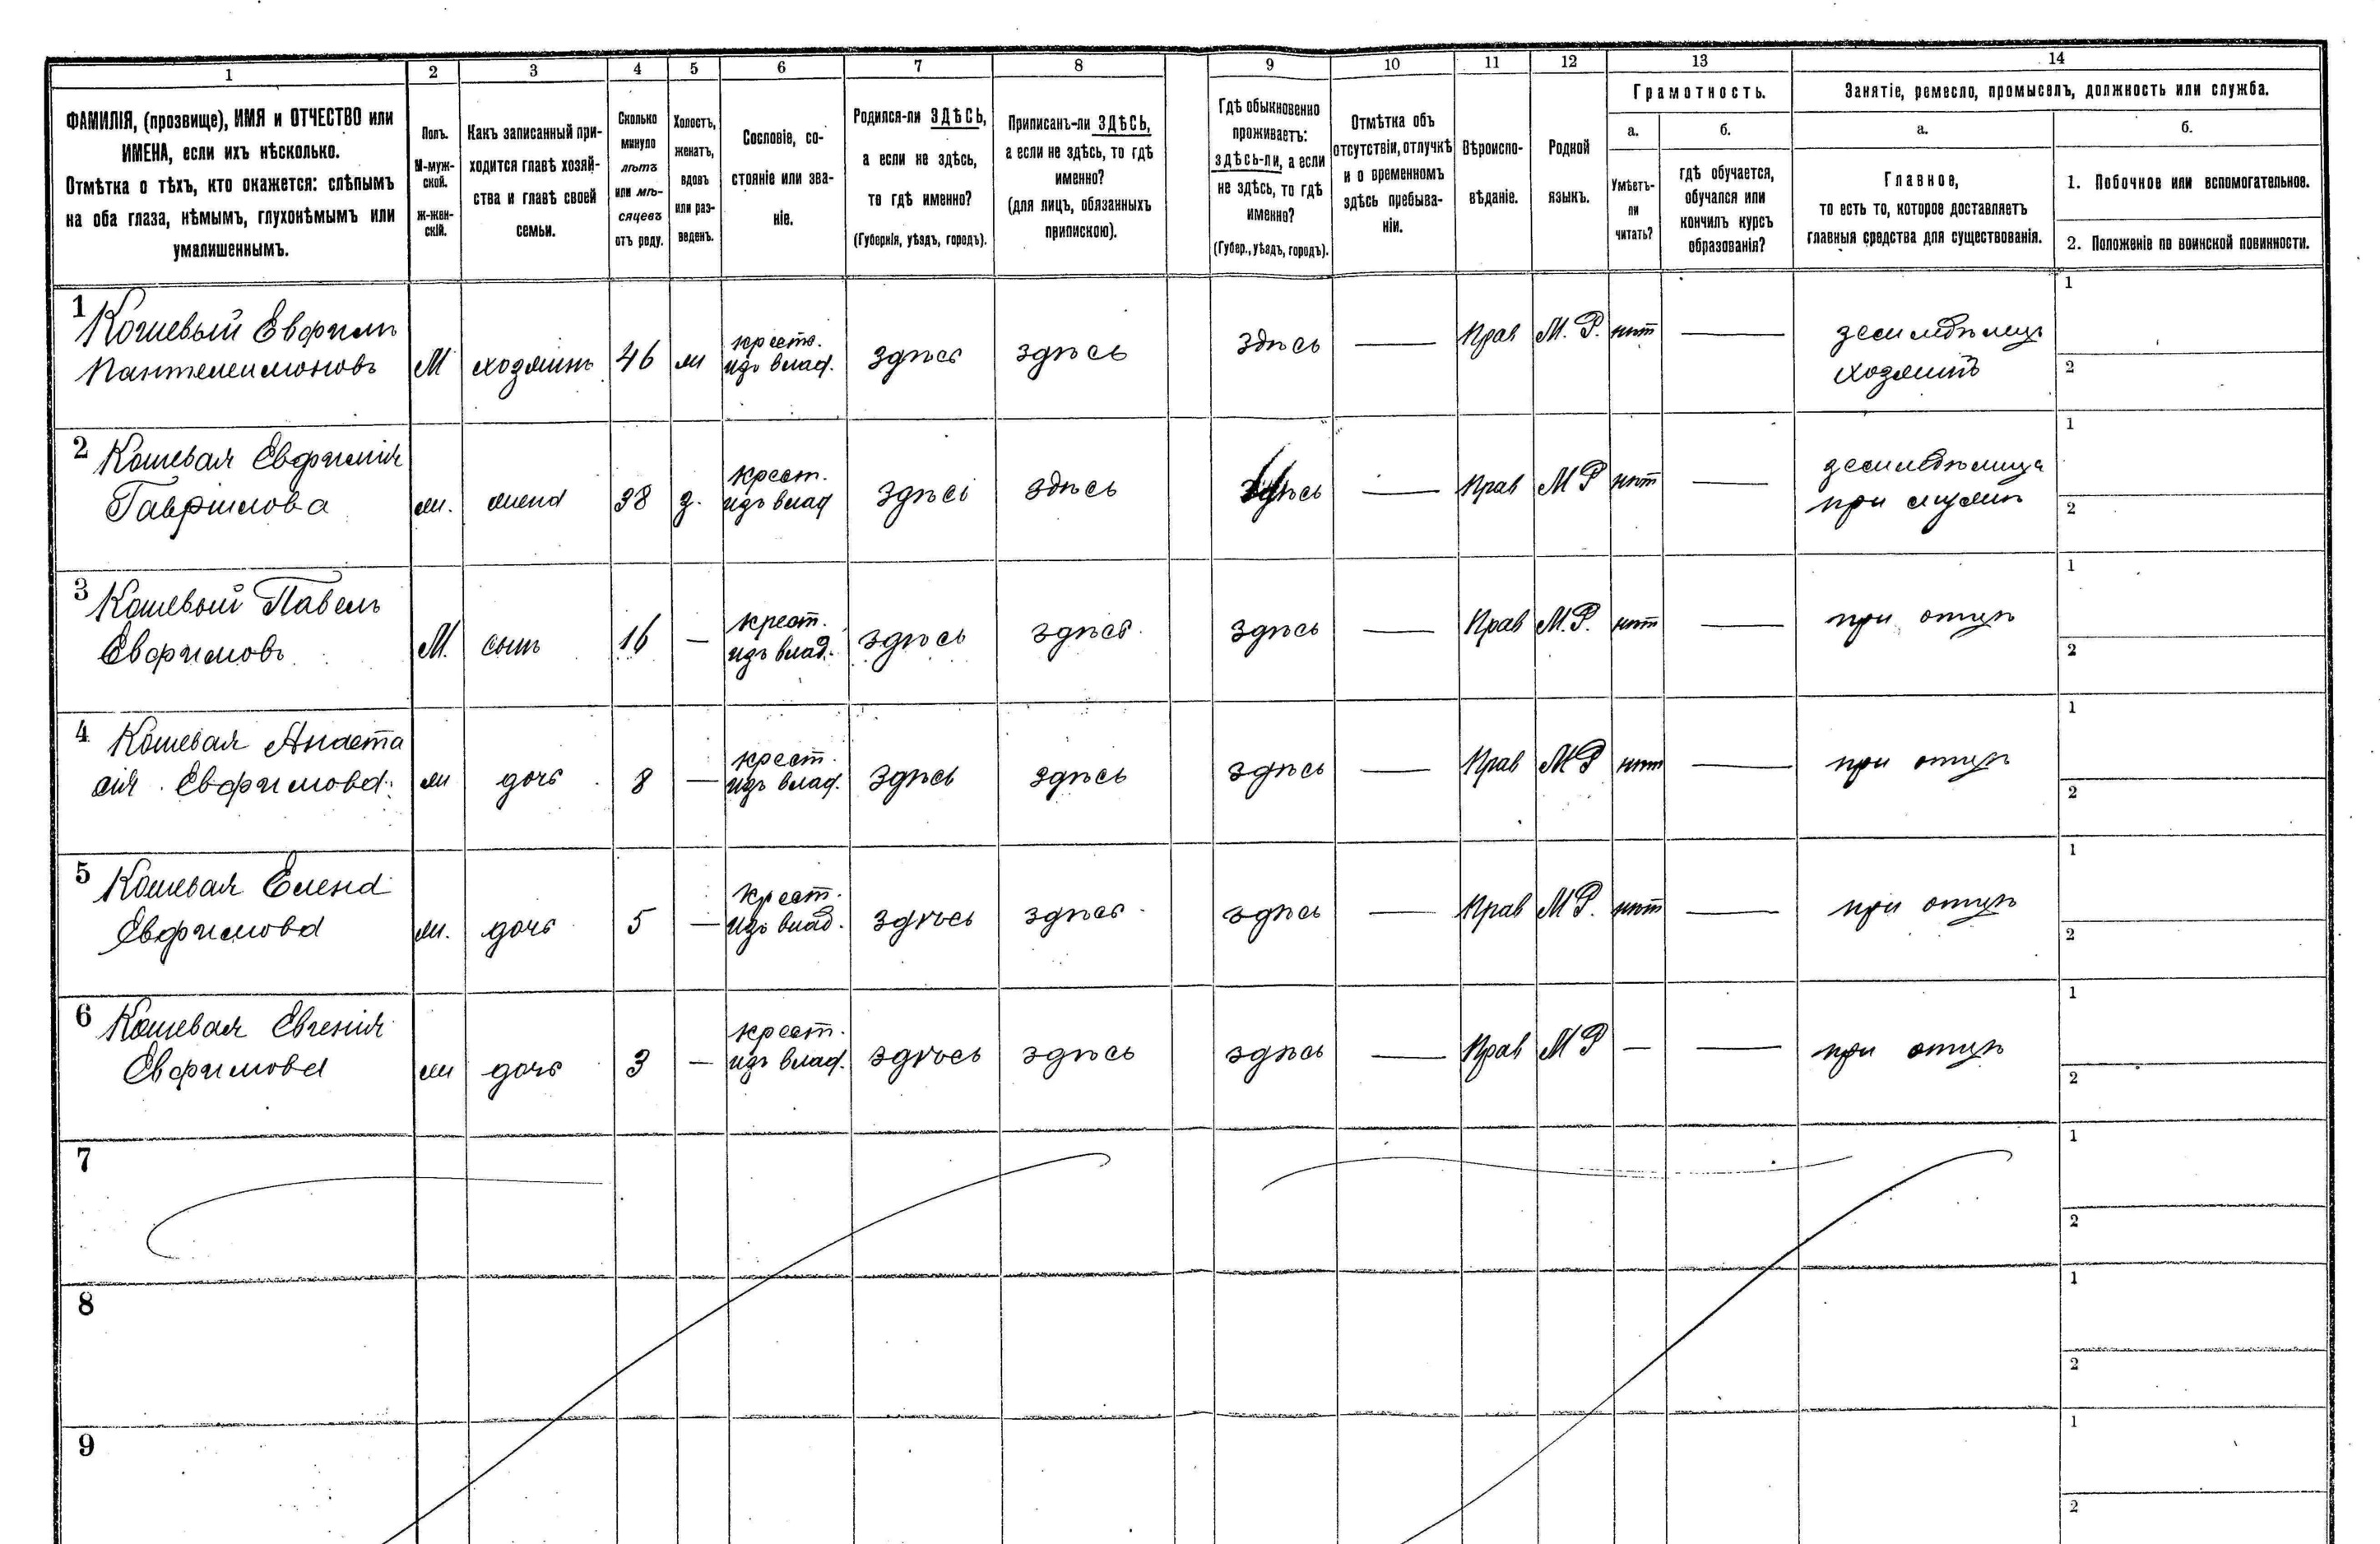 1 2 3 4 5 6 7 8 9 10 11 12 13 14
ФАМИЛІЯ, (прозвище), ИМЯ и ОТЧЕСТВО или
ИМЕНА, если ихъ нѣсколько.
Отмѣтка о тѣхъ, кто окажется: слѣпымъ
на оба глаза, нѣмымъ, глухонѣмымъ или
умалишеннымъ.
Полъ.
М-муж-
ской.
ж-жен-
скій.
Какъ записанный при-
ходится главѣ хозяй-
ства и главѣ своей
семьи.
Сколько
минуло
лѣтъ
или мѣ-
сяцевъ
отъ роду.
Холостъ,
женатъ,
вдовъ
или раз-
веденъ.
Сословіе, со-
стояніе или зва-
ніе.
Родился-ли ЗДѢСЬ,
а если не здѣсь,
то гдѣ именно?
(Губернія, уѣздъ, городъ).
Приписанъ-ли ЗДѢСЬ,
а если не здѣсь, то гдѣ
именно?
(для лицъ, обязанныхъ
припискою).
Гдѣ обыкновенно
проживаетъ:
здѣсь-ли, а если
не здѣсь, то гдѣ
именно?
(Губер., уѣздъ, городъ).
Отмѣтка объ
отсутствіи, отлучкѣ
и о временномъ
здѣсь пребыва-
ніи.
Вѣроиспо-
вѣданіе.
Родной
языкъ.
Грамотность.
а.
Умѣетъ-
ли
читать?
б.
гдѣ обучается,
обучался или
кончилъ курсъ
образованія?
Занятіе, ремесло, промыселъ, должность или служба.
а.
Главное,
то есть то, которое доставляетъ
главныя средства для существованія.
б.
1. Побочное или вспомогательное.
2. Положеніе по воинской повинности.
1 Кошевый Евфимъ
Пантелеимоновъ
М хозяинъ 46 ж
крестъ.
изъ влад.
здѣсь здѣсь здѣсь — Прав М. Р. нѣт —
земледѣлец
хозяинъ
1
2
2 Кошевая Евфимія
Гаврiилова
ж. жена 38 з.
крест.
изъ влад
здѣсь здѣсь здѣсь — Прав М Р нѣт —
земледѣлица
при мужѣ
1
2
3 Кошевый Павелъ
Евфимовъ
М. сынъ 16 —
крест.
изъ влад.
здѣсь здѣсь здѣсь — Прав М. Р. нѣт — при отцѣ
1
2
4 Кошевая Анаста
сія Евфимова
ж дочь 8 —
крест.
изъ влад.
здѣсь здѣсь здѣсь — Прав М Р нѣт — при отцѣ
1
2
5 Кошевая Елена
Евфимова
ж. дочь 5 —
крест.
изъ влад.
здѣсь здѣсь здѣсь — Прав М Р. нѣт — при отцѣ
1
2
6 Кошевая Евгенія
Евфимова
ж дочь 3 —
крест.
изъ влад.
здѣсь здѣсь здѣсь — Прав М Р — — при отцѣ
1
2
7
1
2
8
1
2
9
1
2